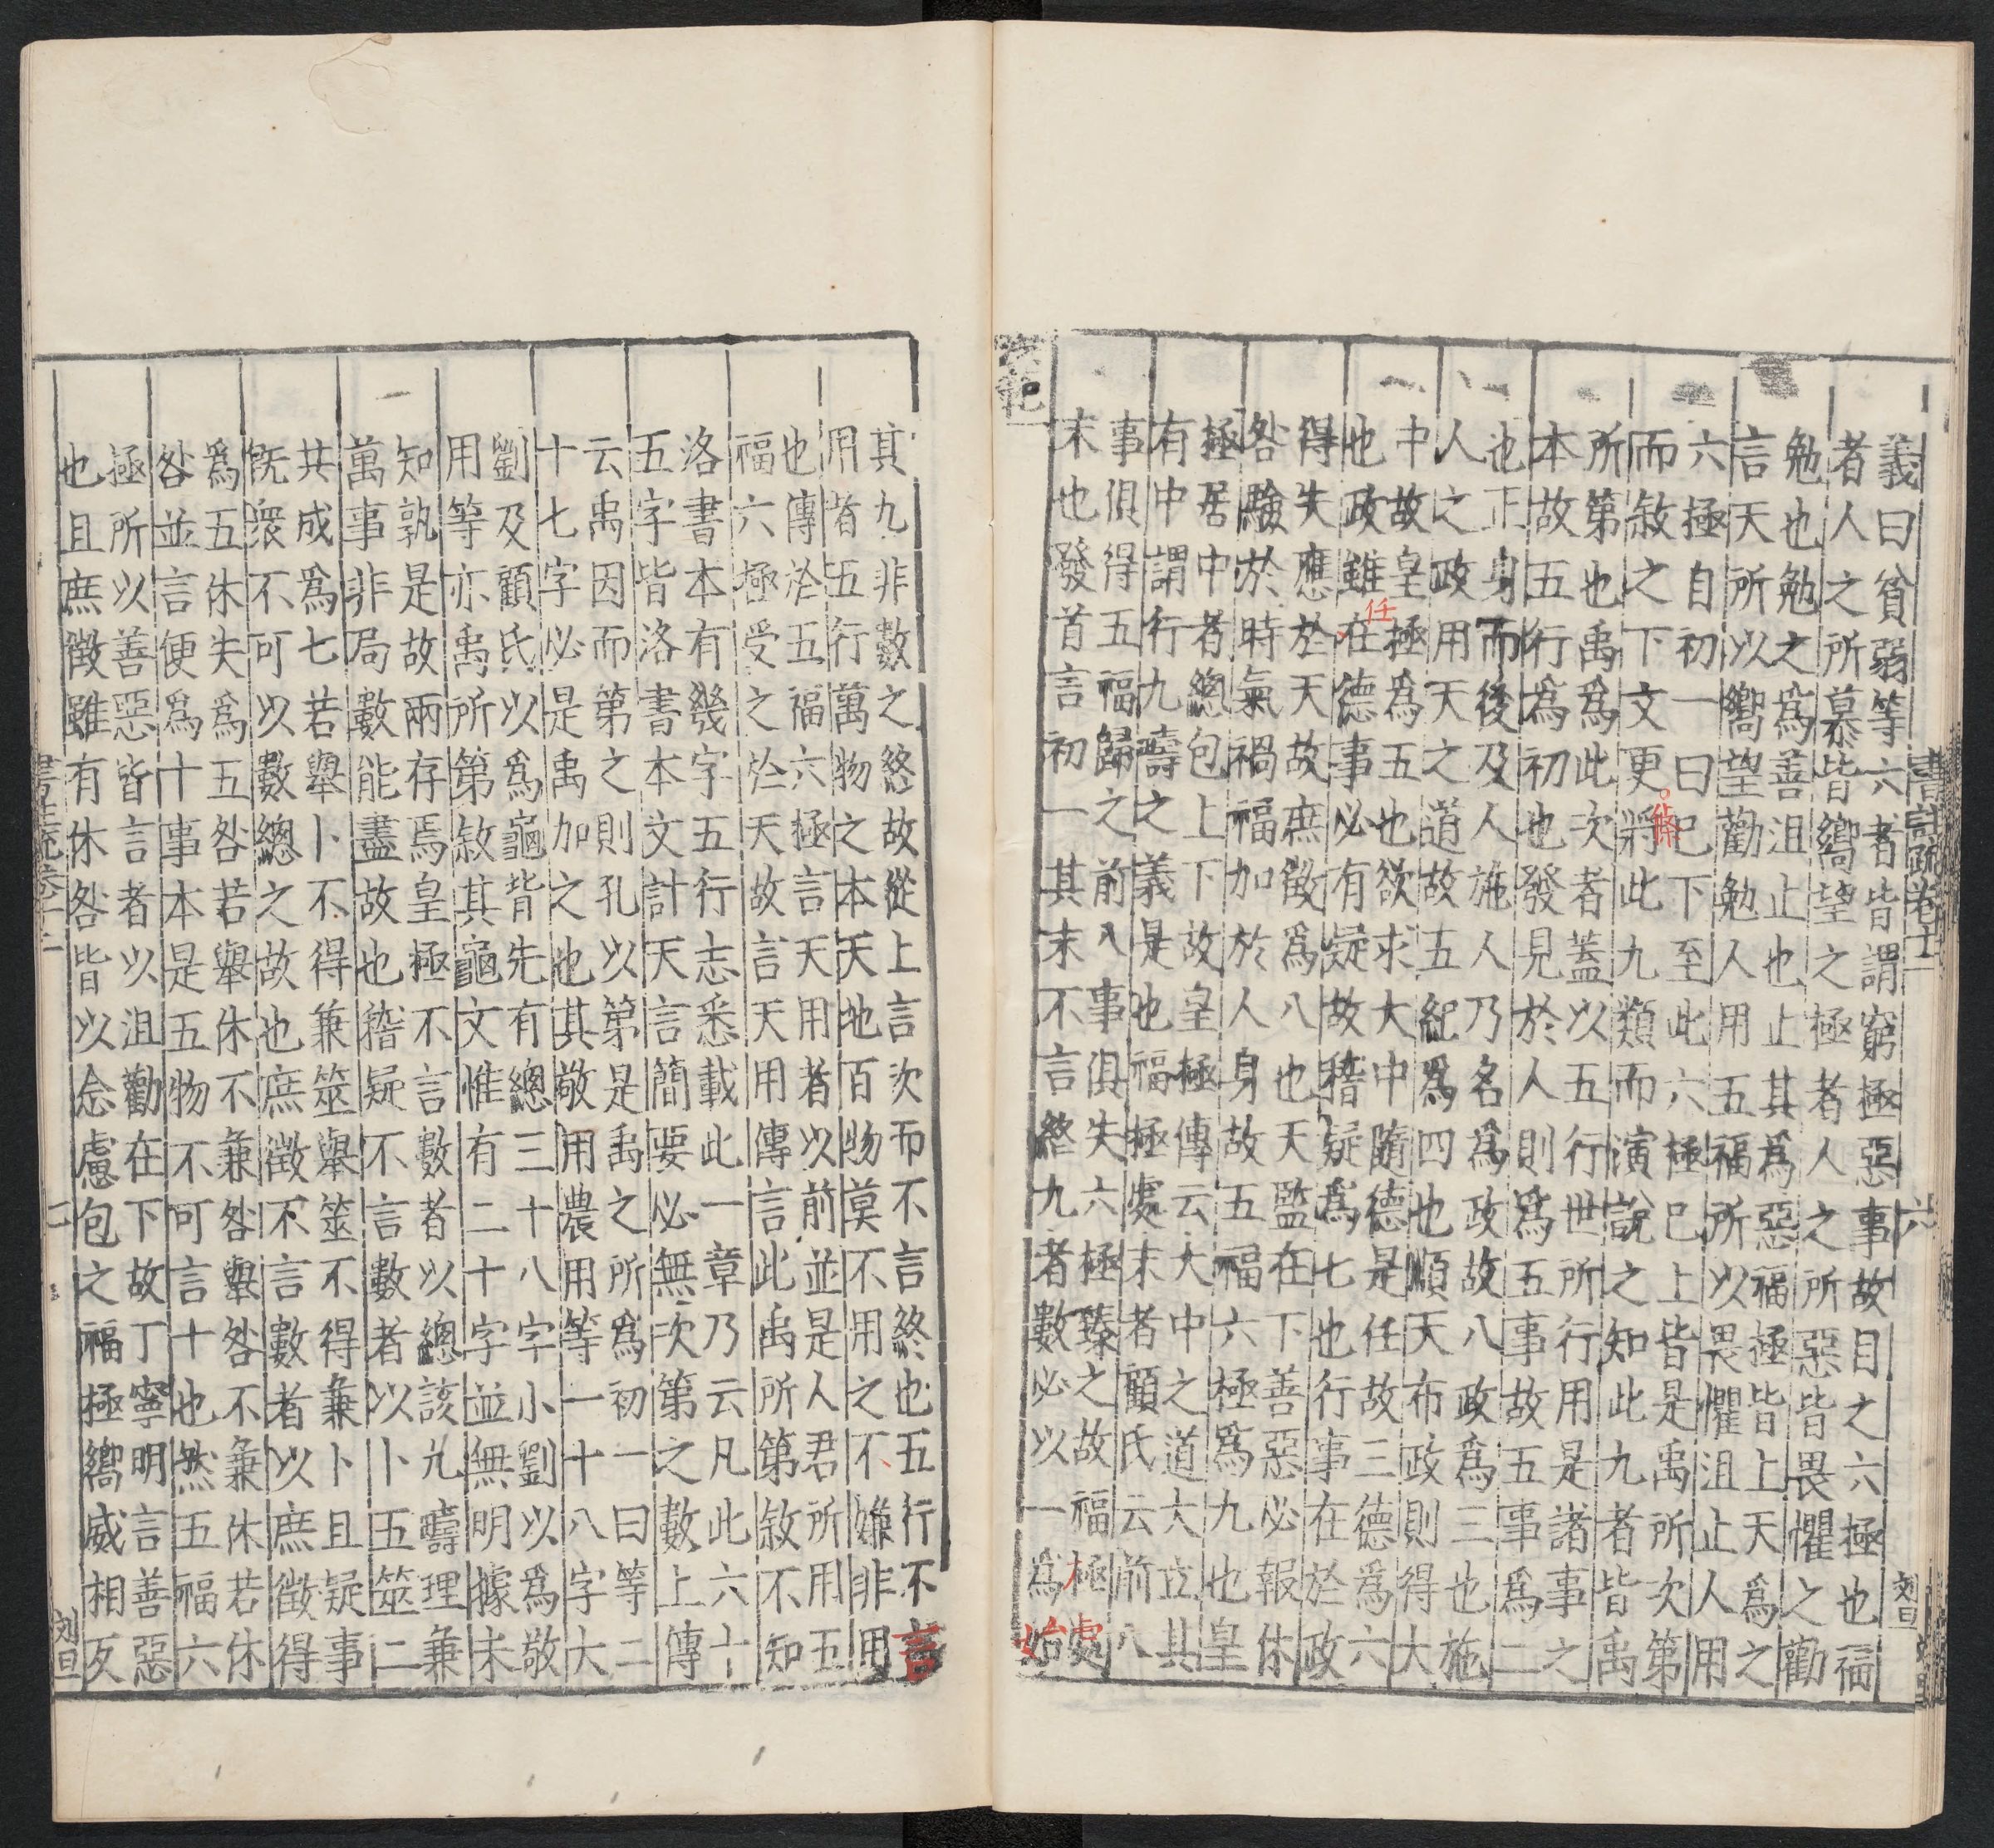 書註疏卷十二
六
刘旦
義曰貧弱等六者皆謂窮極惡事故目之六極也福
者人之所慕皆嚮望之極者人之所惡皆畏懼之勸
勉也勉之爲善沮止也止其爲惡福極皆上天爲之
言天所以嚮望勸勉人用五福所以畏懼沮止人用
六極自初一曰已下至此六極已上皆是禹所次第
條
而敘之下文更將此九類而演說之知此九者皆禹
所第也禹爲此次者蓋以五行世所行用是諸事之
本故五行爲初也發見於人則爲五事故五事爲二
也正身而後及人施人乃名爲政故八政爲三也施
人之政用天之道故五紀爲四也順天布政則得大
中故皇極爲五也欲求大中隨德是任故三德爲六
任
也政雖在德事必有疑故稽疑爲七也行事在於政
得失應於天故庶徵爲八也天監在下善惡必報休
咎驗於時氣禍福加於人身故五福六極爲九也皇
極居中者總包上下故皇極傳云大中之道大立其
有中謂行九疇之義是也福極處末者顧氏云前八
事俱得五福歸之前八事俱失六極臻之故福極處
末也發首言初一其末不言終九者數必以一爲始
其九非數之終故從上言次而不言終也五行不言
用者五行萬物之本天地百物莫不用之不嫌非用
也傳於五福六極言天用者以前並是人君所用五
福六極受之於天故言天用傳言此禹所第敘不知
洛書本有幾字五行志悉載此一章乃云凡此六十
五字皆洛書本文計天言簡要必無次第之數上傳
云禹因而第之則孔以第是禹之所爲初一曰等二
十七字必是禹加之也其敬用農用等一十八字大
劉及顧氏以爲龜背先有總三十八字小劉以爲敬
用等亦禹所第敘其龜文惟有二十字並無明據未
知孰是故兩存焉皇極不言數者以總該九疇理兼
萬事非局數能盡故也稽疑不言數者以卜五筮二
共成爲七若舉卜不得兼筮舉筮不得兼卜且疑事
既衆不可以數總之故也庶徵不言數者以庶徵得
爲五休失爲五咎若舉休不兼咎舉咎不兼休若休
咎並言便爲十事本是五物不可言十也然五福六
極所以善惡皆言者以沮勸在下故丁寧明言善惡
也且庶徵雖有休咎皆以念慮包之福極嚮威相反
書註疏卷十二
刘旦